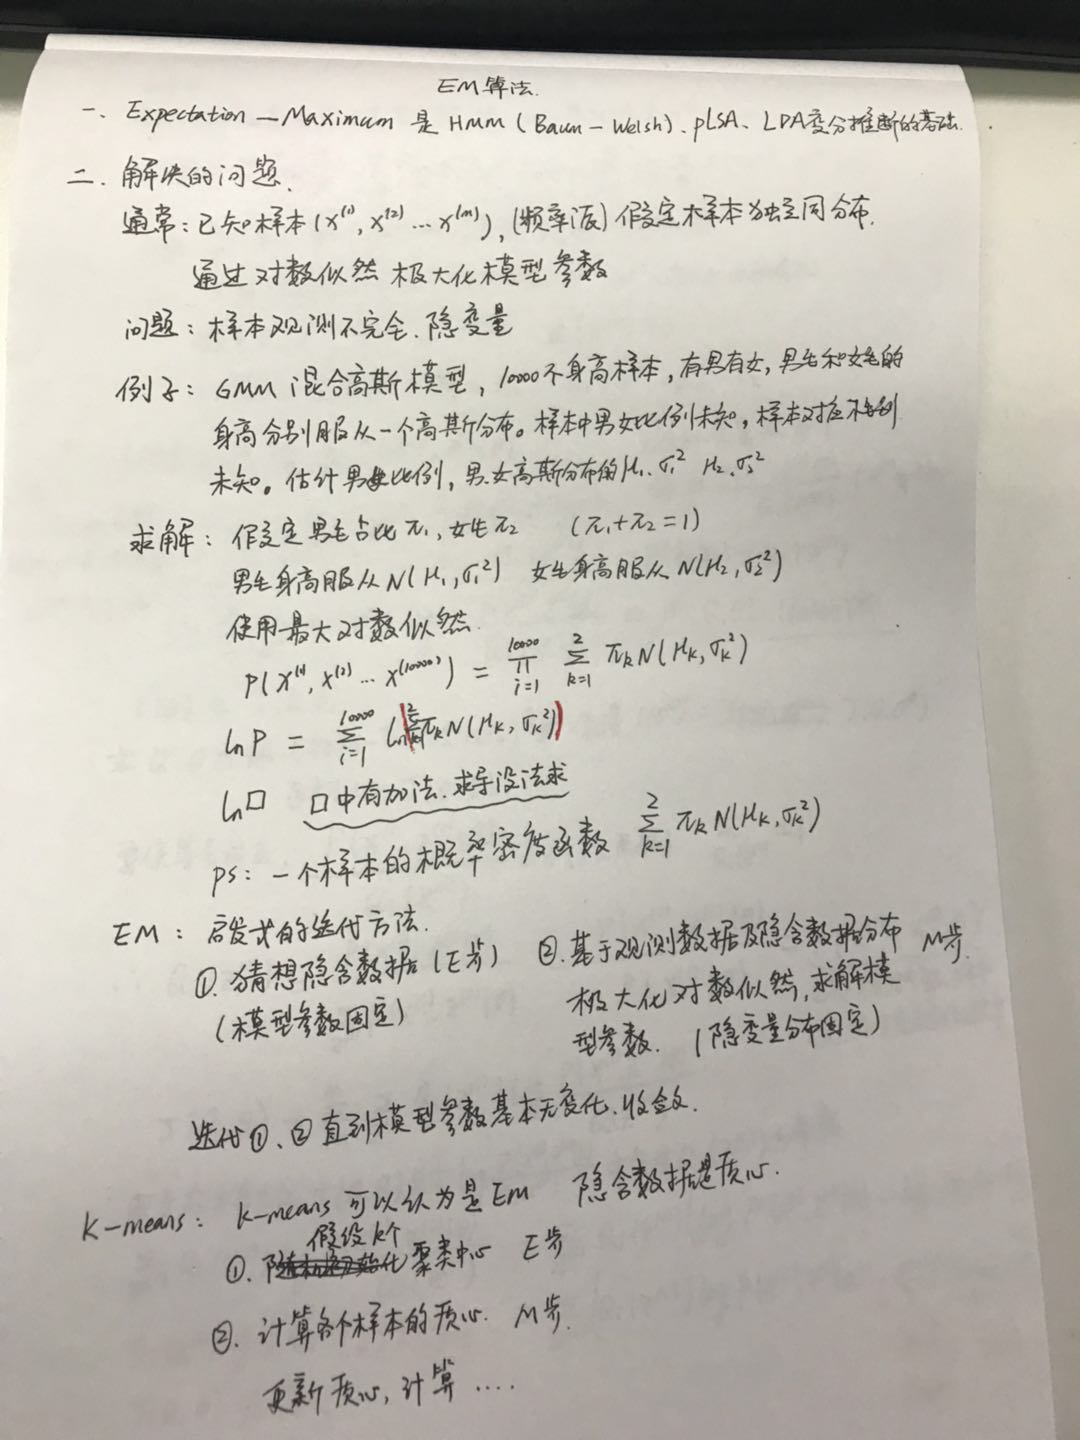 EM算法.
一. Expectation — Maximum 是 HMM (Baum - Welsh)、pLSA、LDA变分推断的基础.
二. 解决的问题.
通常：已知样本 (x⁽¹⁾, x⁽²⁾ ... x⁽ᵐ⁾), (频率派) 假定样本独立同分布.
通过对数似然 极大化模型参数
问题：样本观测不完全. 隐变量
例子：GMM 混合高斯模型，10000个身高样本，有男有女，男生和女生的
身高分别服从一个高斯分布。样本中男女比例未知，样本对应性别
未知。估计男女比例，男.女高斯分布的μ₁. σ₁² μ₂. σ₂²
求解：假定男生占比π₁, 女生π₂ (π₁+π₂=1)
男生身高服从N(μ₁, σ₁²) 女生身高服从N(μ₂, σ₂²)
使用最大对数似然.
P(x⁽¹⁾, x⁽²⁾ ... x⁽¹⁰⁰⁰⁰⁾) = ∏_{i=1}^{10000} ∑_{k=1}^{2} π_k N(μ_k, σ_k²)
ln P = ∑_{i=1}^{10000} ln(∑_{k=1}^{2} π_k N(μ_k, σ_k²))
ln□ □中有加法. 求导没法求
ps：一个样本的概率密度函数 ∑_{k=1}^{2} π_k N(μ_k, σ_k²)
EM：启发式的迭代方法.
①. 猜想隐含数据 (E步)
(模型参数固定)
②. 基于观测数据及隐含数据分布 M步.
极大化对数似然, 求解模
型参数. (隐变量分布固定)
迭代①、②直到模型参数基本无变化. 收敛.
K-means：k-means 可以认为是EM 隐含数据是质心.
假设k个
①. 随机初始化聚类中心 E步
②. 计算各个样本的质心. M步.
更新质心, 计算 ....